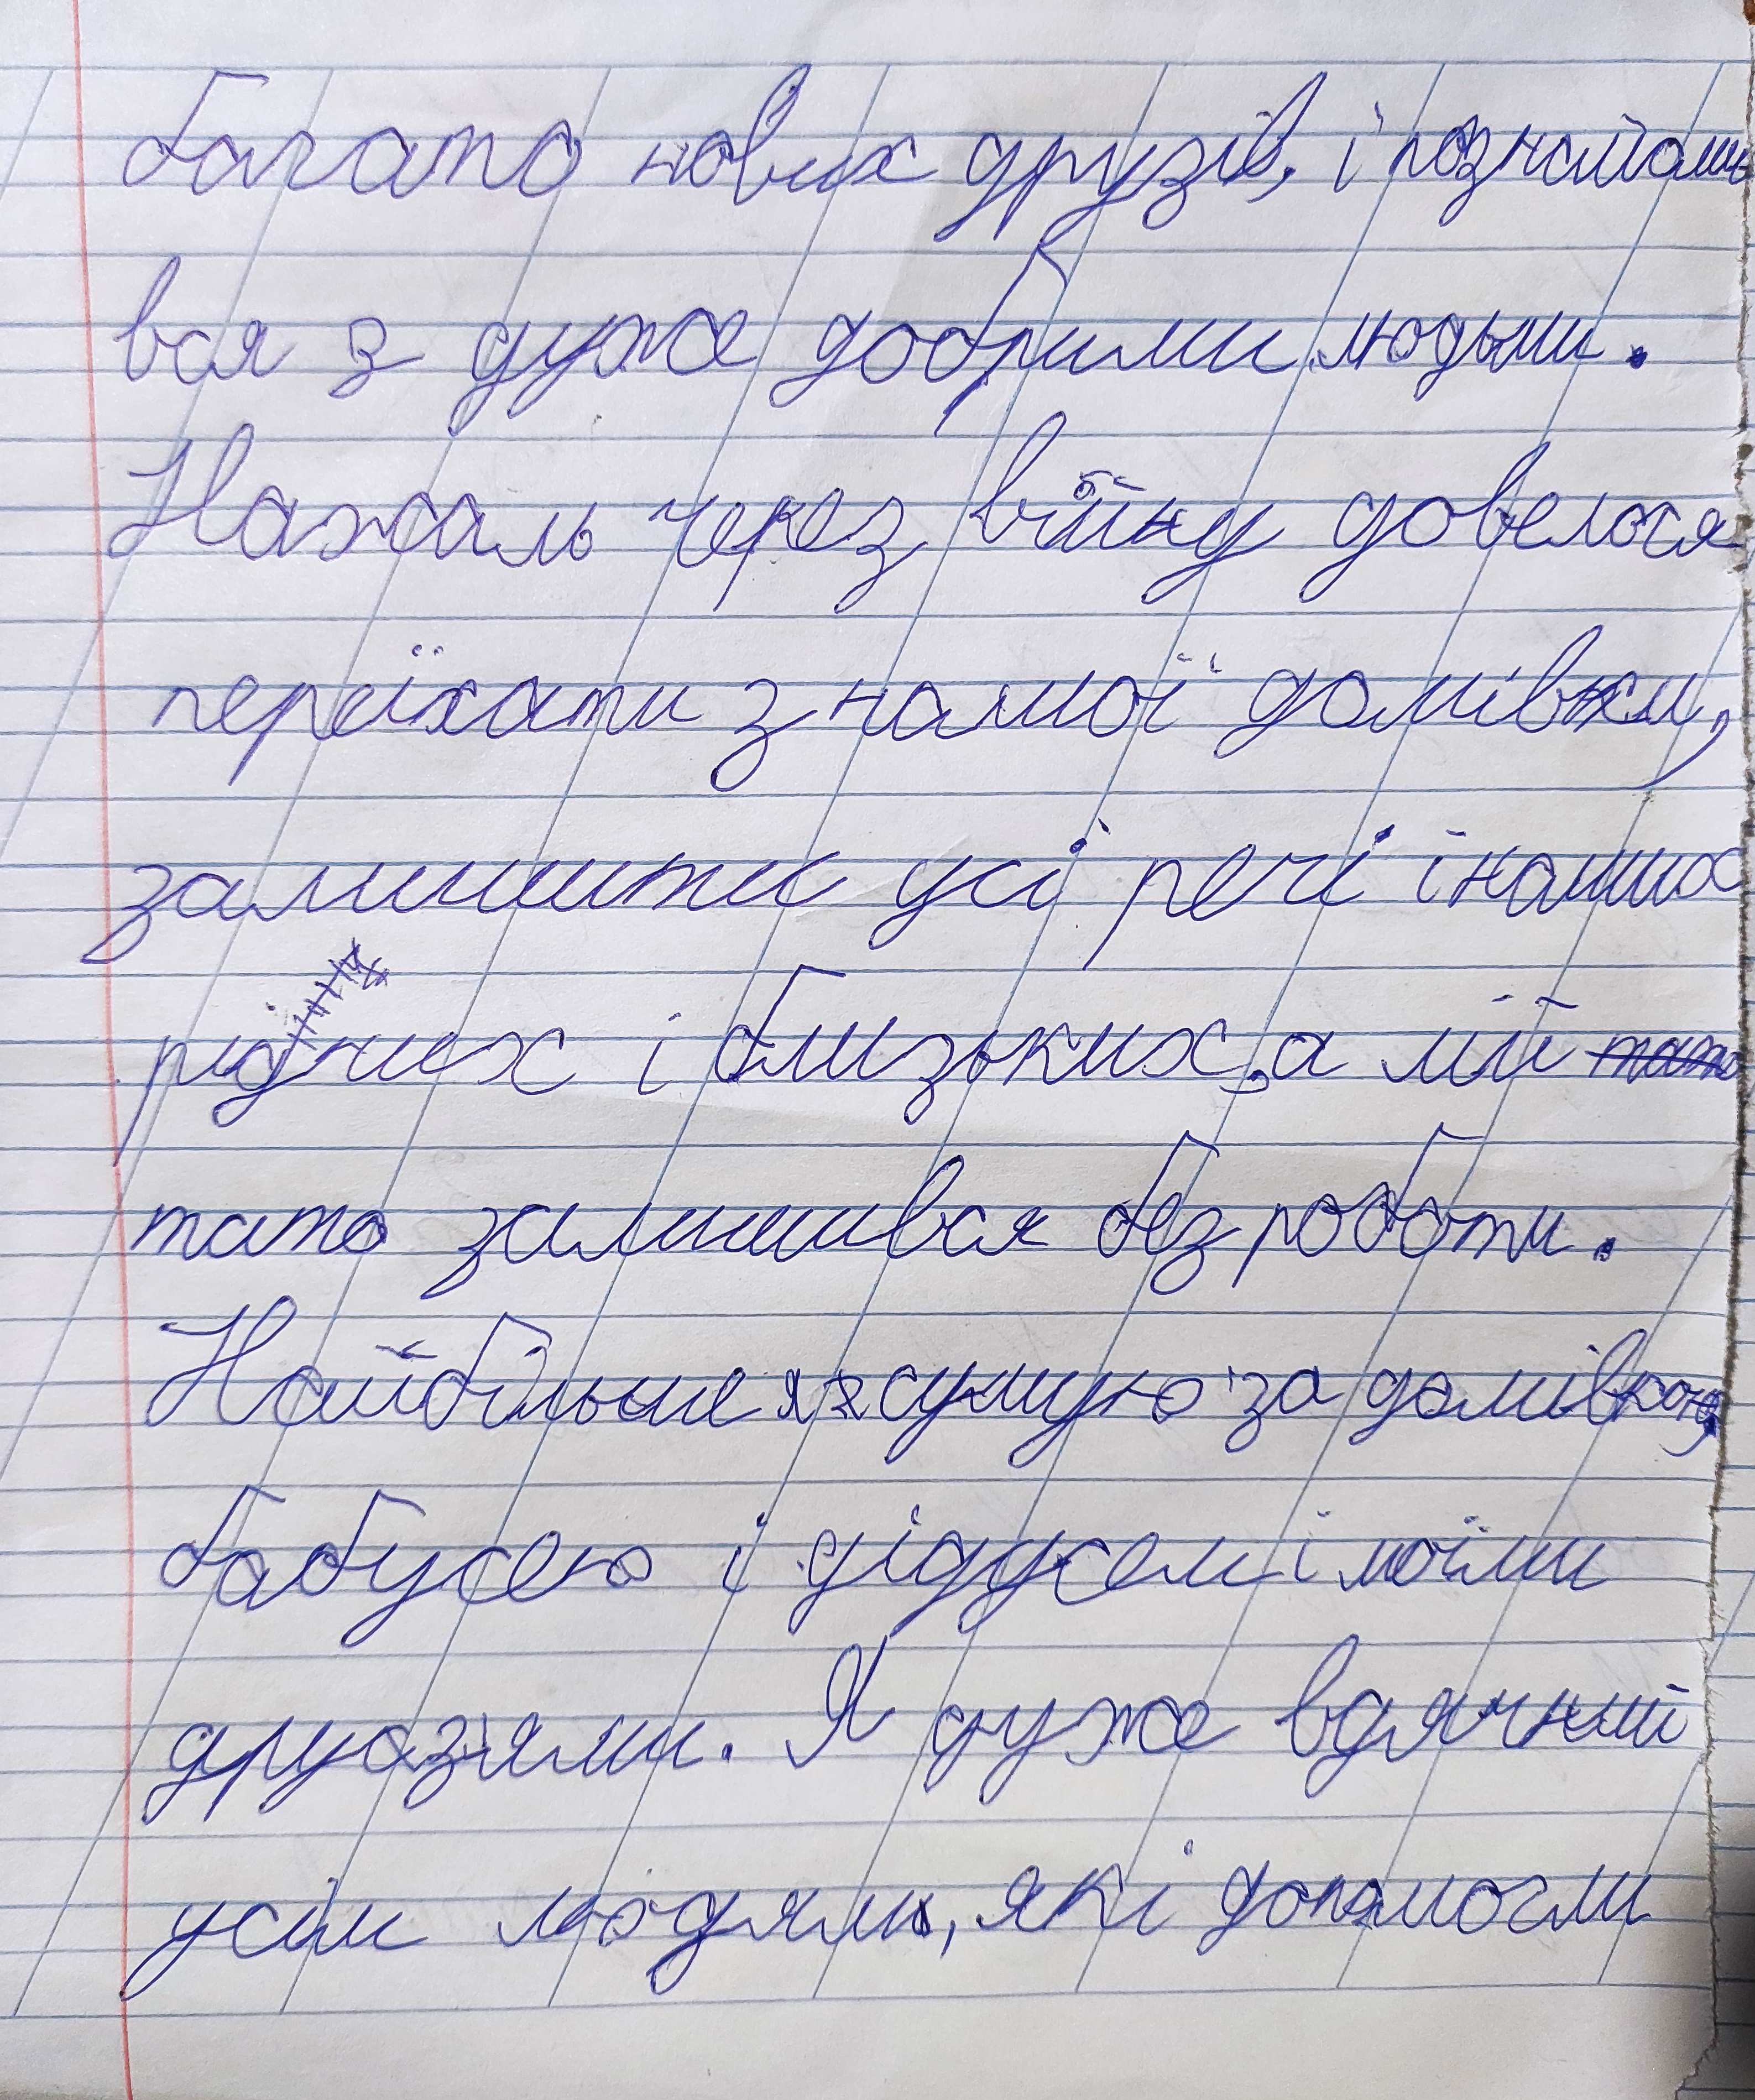 багато нових друзів, і познайоми
вся з дуже добрими людьми.
Нажаль через війну довелося
переїхати з нашої домівки,
залишити усі речі і наших
рідних і близьких, а мій тато
тато залишився без роботи.
Найбільше я сумую за домівкою,
бабусею і дідусем і моїми
друзями. Я дуже вдячний
усім людям, які допомогли